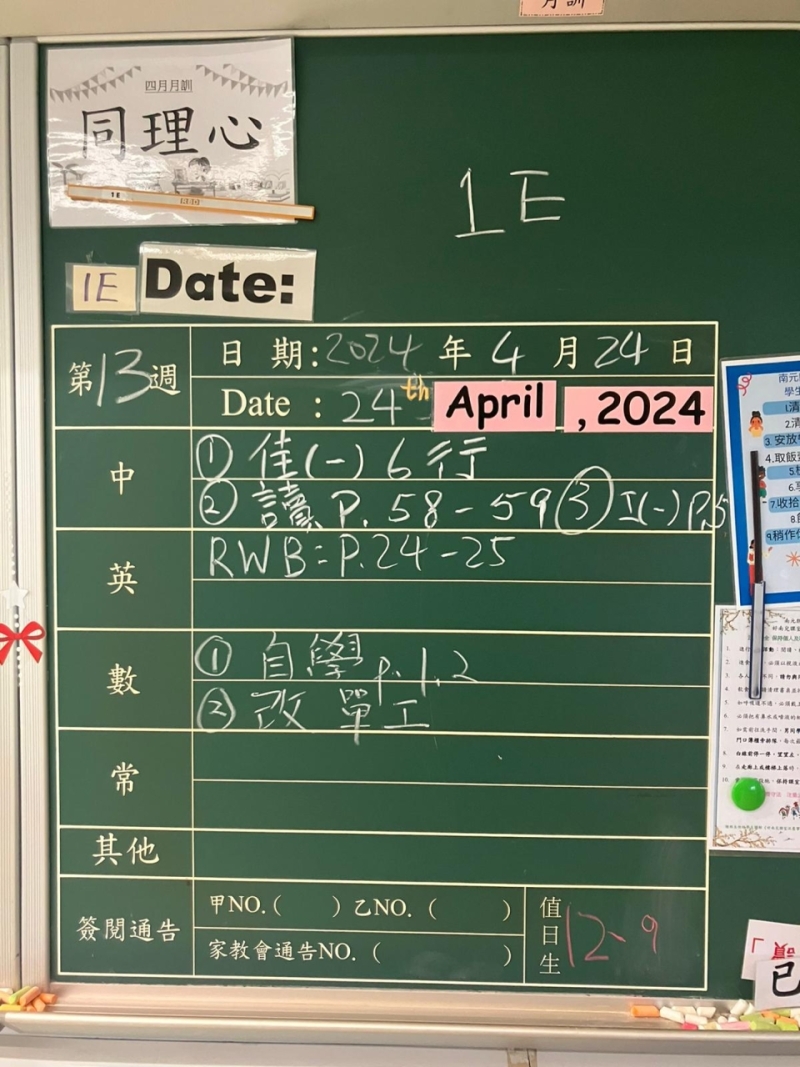 月訓
四月月訓
同理心
1E
1E
1E
Date:
第13週
日 期:2024年4月24日
Date : 24th April, 2024
中
① 佳(一) 6行
② 讀 P. 58-59 ③ 工(一) P.5
英
RWB: P.24-25
數
① 自學 p.1,2
② 改 單工
常
其他
簽閱通告
甲NO.( ) 乙NO. ( )
家教會通告NO. ( )
值日生 12、9
南元
學生
1.清
2.清
3.安放
4.取飯
5.
6.
7.收拾
8.
9.稍作休
已